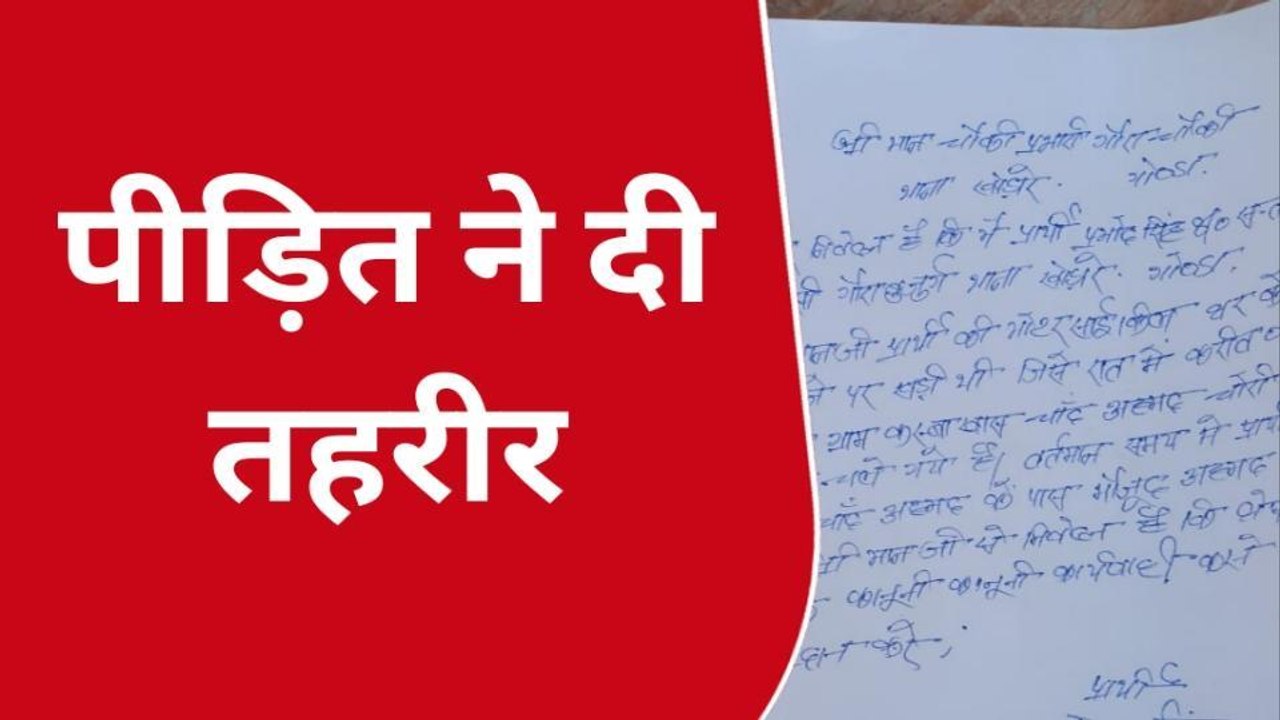 पीड़ित ने दी
तहरीर
श्री मान चौकी प्रभारी गौरा चौकी
थाना खोड़ारे. गोण्डा.
निवेदन है कि मैं प्रार्थी प्रमोद सिंह
थाना खोड़ारे. गोण्डा.
प्रार्थी की मोटर साईकिल घर के
पर खड़ी थी जिसे रात में करीब
ग्राम कस्बा खास चाँद अहमद चोरी
चले गये हैं। वर्तमान समय में
चाँद अहमद के पास मौजूद अहमद
श्री मान जी से निवेदन है कि
कानूनी कानूनी कार्यवाही करने
करें।
प्रार्थी